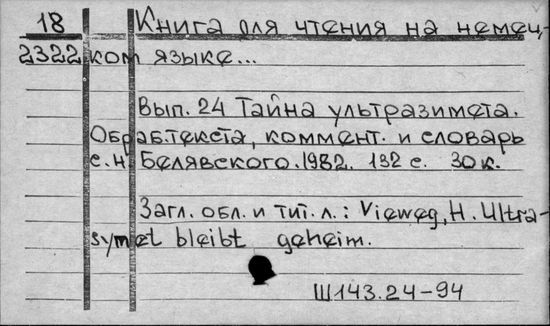 18 Книга для чтения на немец-
2322 ком языке...
Вып. 24 Тайна ультразимета.
Обраб.текста, коммент. и словарь
с.н. Белявского. 1982. 132 с. 30 к.
Загл. обл. и тит. л.: Vieweg, H. Ultra-
symet bleibt geheim.
Ш143.24-94